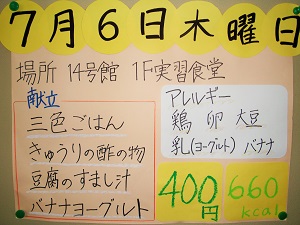 7月6日木曜日
場所 14号館 1F実習食堂
献立
三色ごはん
きゅうりの酢の物
豆腐のすまし汁
バナナヨーグルト
アレルギー
鶏 卵 大豆
乳(ヨーグルト) バナナ
400円
660kcal